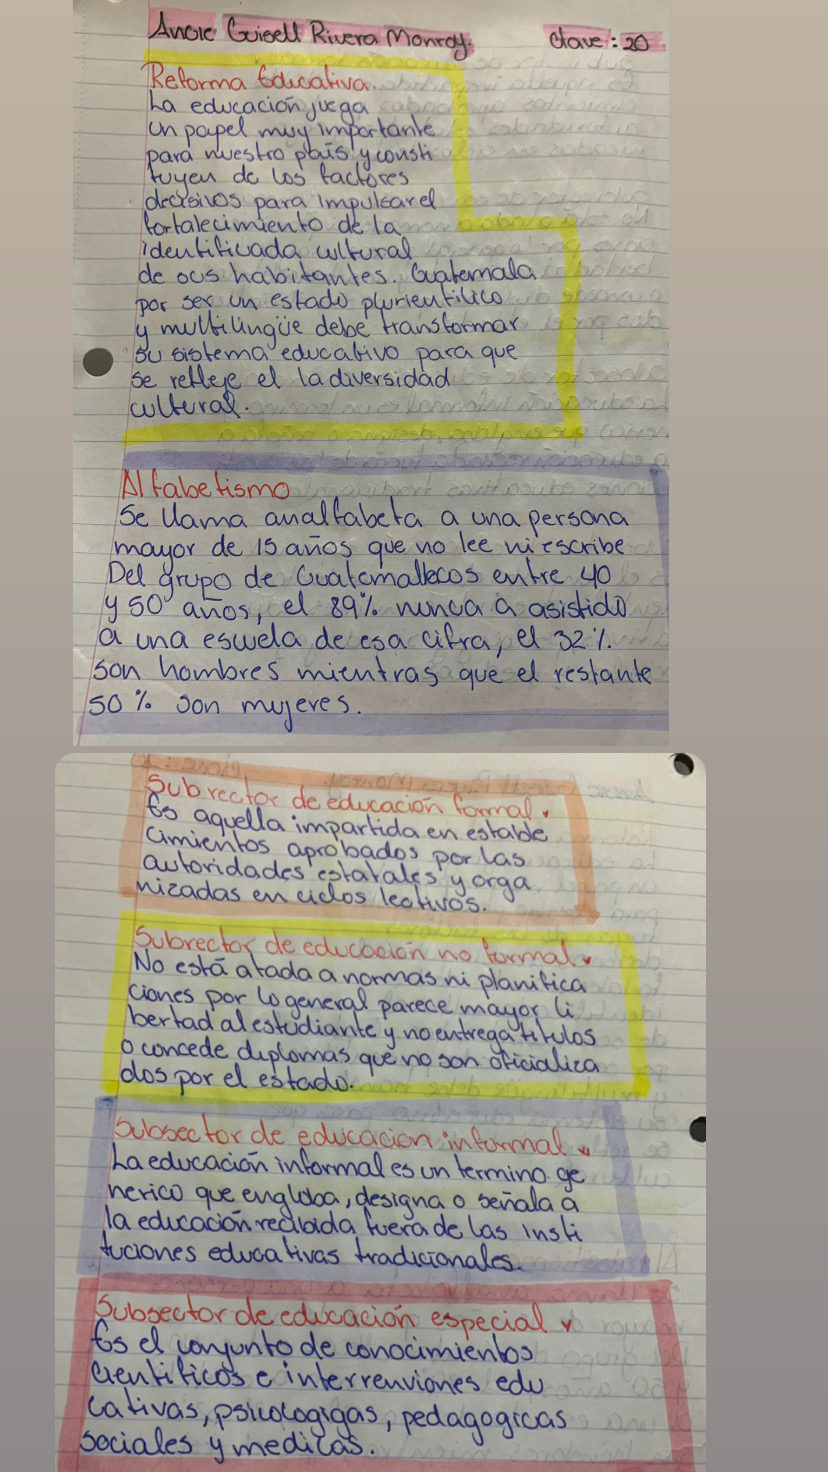 Angie Guisell Rivera Monroy. Clave: 20
Reforma Educativa.
La educación juega
un papel muy importante
para nuestro país y consti
tuyen de los factores
decisivos para impulsar el
fortalecimiento de la
identificada cultural
de ocus habitantes. Guatemala
por ser un estado plurientilico
y multilingüe debe transformar
su sistema educativo para que
se refleje el la diversidad
cultural.
Alfabetismo
Se llama analfabeta a una persona
mayor de 15 años que no lee ni escribe
Del grupo de Guatemaltecos entre 40
y 50 años, el 89% nunca a asistido
a una escuela de esa cifra, el 32%.
son hombres mientras que el restante
50% son mujeres.
Subrector de educacion formal.
Es aquella impartida en estable
cimientos aprobados por las
autoridades estatales y orga
nizadas en ciclos lectivos.
Subrector de educación no formal.
No está atada a normas ni planifica
ciones por lo general parece mayor li
bertad al estudiante y no entrega titulos
o concede diplomas que no son oficializa
dos por el estado.
Subsector de educacion informal.
La educación informal es un termino ge
nerico que engloba, designa o señala a
la educación recibida fuera de las insti
tuciones educativas tradicionales.
Subsector de educación especial
Es el conjunto de conocimientos
cientificos e interrenviones edu
cativas, psicologigas, pedagogicas
sociales y medicas.